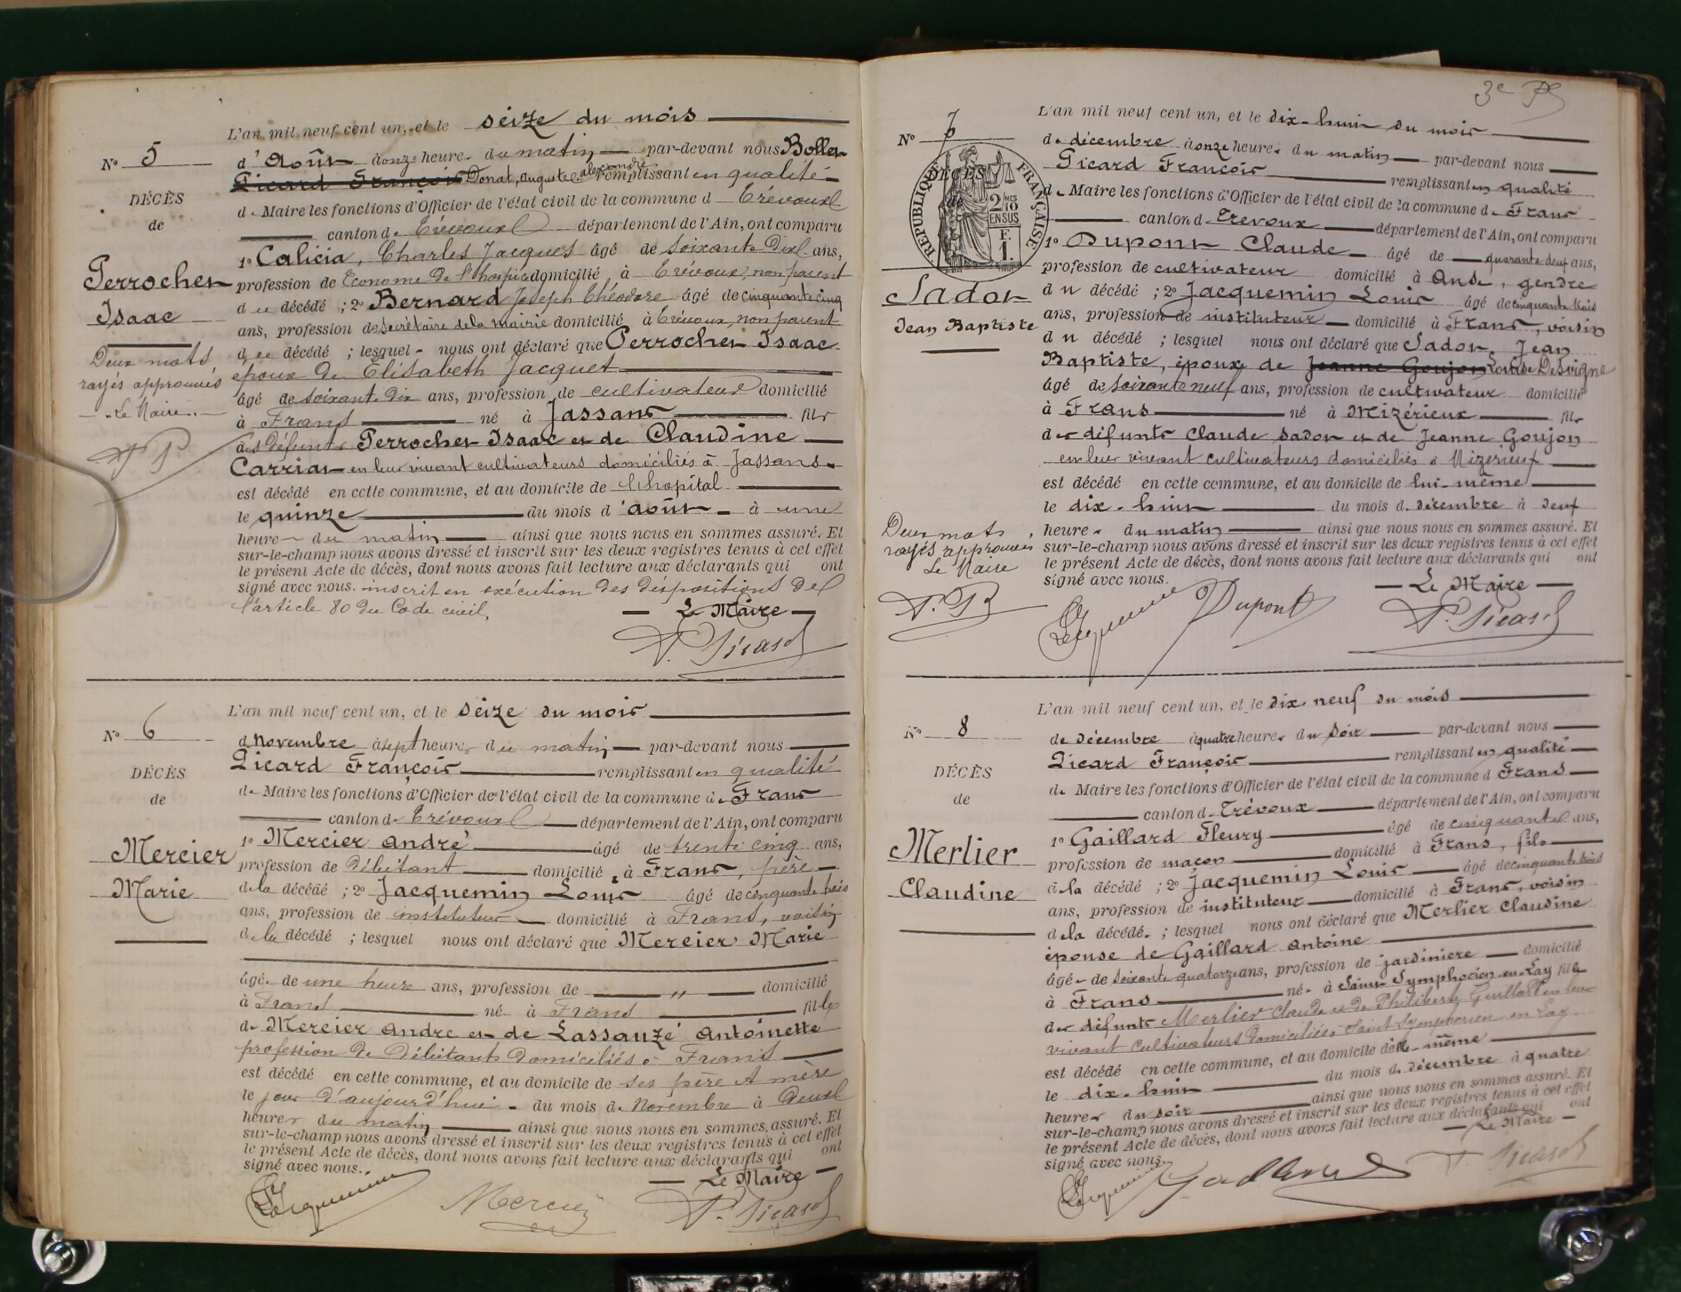 N° 5
DÉCÈS
de
Perrochet
Isaac
Deux mots
rayés approuvés
Le Maire
L'an mil neuf cent un, et le seize du mois
d'Août à onze heures du matin par-devant nous Bollet
Picard François Donat, Auguste Alexandre remplissant en qualité
de Maire les fonctions d'Officier de l'état civil de la commune d Trévoux
canton de Trévoux département de l'Ain, ont comparu
1° Calicia, Charles Jacques âgé de soixante Dix ans,
profession de Econome de l'hospice domicilié à Trévoux, non parent
du décédé ; 2° Bernard Joseph Théodore âgé de cinquante cinq
ans, profession de secrétaire de la mairie domicilié à Trévoux, non parent
du décédé ; lesquels nous ont déclaré que Perrochet Isaac
époux de Elisabeth Jacquet
âgé de soixante dix ans, profession de cultivateur domicilié
à Frans né à Jassans fils
des défunts Perrochet Isaac et de Claudine
Carriat en leur vivant cultivateurs domiciliés à Jassans
est décédé en cette commune, et au domicile de l'hôpital
le quinze du mois d'août à une
heure du matin ainsi que nous nous en sommes assuré. Et
sur-le-champ nous avons dressé et inscrit sur les deux registres tenus à cet effet
le présent Acte de décès, dont nous avons fait lecture aux déclarants qui ont
signé avec nous. inscrit en exécution des dispositions de
l'article 80 du Code civil.
Le Maire
P. Picard
N° 6
DÉCÈS
de
Mercier
Marie
L'an mil neuf cent un, et le seize du mois
de novembre à sept heures du matin par-devant nous
Picard François remplissant en qualité
de Maire les fonctions d'Officier de l'état civil de la commune de Frans
canton de Trévoux département de l'Ain, ont comparu
1° Mercier André âgé de trente cinq ans,
profession de Débitant domicilié à Frans, père
de la décédé ; 2° Jacquemin Louis âgé de cinquante trois
ans, profession de instituteur domicilié à Frans, voisin
de la décédé ; lesquel nous ont déclaré que Mercier Marie
âgé de une heure ans, profession de " domicilié
à Frans né à Frans fille
de Mercier André et de Lassauzé Antoinette
profession de Débitants domiciliés à Frans
est décédé en cette commune, et au domicile de ses père et mère
le jour d'aujourd'hui du mois de Novembre à deux
heures du matin ainsi que nous nous en sommes assuré. Et
sur-le-champ nous avons dressé et inscrit sur les deux registres tenus à cet effet
le présent Acte de décès, dont nous avons fait lecture aux déclarants qui ont
signé avec nous.
Le Maire
Jacquemin Mercier P. Picard
3e
N° 7
DÉCÈS
de
RÉPUBLIQUE FRANÇAISE
2/10 EN SUS
F. 1
Sadot
Jean Baptiste
Deux mots
rayés approuvés
Le Maire
L'an mil neuf cent un, et le dix-huit du mois
de décembre à onze heures du matin par-devant nous
Picard François remplissant en qualité
de Maire les fonctions d'Officier de l'état civil de la commune de Frans
canton d Trévoux département de l'Ain, ont comparu
1° Dupont Claude âgé de quarante deux ans,
profession de cultivateur domicilié à Anse, gendre
du décédé ; 2° Jacquemin Louis âgé de cinquante trois
ans, profession de instituteur domicilié à Frans, voisin
du décédé ; lesquel nous ont déclaré que Sadot Jean
Baptiste, époux de Jeanne Goujon Louise Desvigne
âgé de soixante neuf ans, profession de cultivateur domicilié
à Frans né à Mizérieux fils
des défunts Claude Sadot et de Jeanne Goujon
en leur vivant cultivateurs domiciliés à Mizérieux
est décédé en cette commune, et au domicile de lui-même
le dix-huit du mois de décembre à deux
heures du matin ainsi que nous nous en sommes assuré. Et
sur-le-champ nous avons dressé et inscrit sur les deux registres tenus à cet effet
le présent Acte de décès, dont nous avons fait lecture aux déclarants qui ont
signé avec nous.
Le Maire
Jacquemin Dupont P. Picard
N° 8
DÉCÈS
de
Merlier
Claudine
L'an mil neuf cent un, et le dix neuf du mois
de décembre à quatre heures du soir par-devant nous
Picard François remplissant en qualité
de Maire les fonctions d'Officier de l'état civil de la commune d Frans
canton de Trévoux département de l'Ain, ont comparu
1° Gaillard Fleury âgé de cinquante ans,
profession de maçon domicilié à Frans, fils
de la décédé ; 2° Jacquemin Louis âgé de cinquante trois
ans, profession de instituteur domicilié à Frans, voisin
de la décédé. ; lesquel nous ont déclaré que Merlier Claudine
épouse de Gaillard Antoine
âgée de soixante quatorze ans, profession de jardinière domicilié
à Frans née à Saint Symphorien en Lay fille
des défunts Merlier Claude et de Philiberte Guillot en leur
vivant cultivateurs domiciliés Saint Symphorien en Lay
est décédé en cette commune, et au domicile d'elle-même
le dix-huit du mois de décembre à quatre
heures du soir ainsi que nous nous en sommes assuré. Et
sur-le-champ nous avons dressé et inscrit sur les deux registres tenus à cet effet
le présent Acte de décès, dont nous avons fait lecture aux déclarants qui ont
signé avec nous.
Le Maire
Jacquemin Gaillard P. Picard